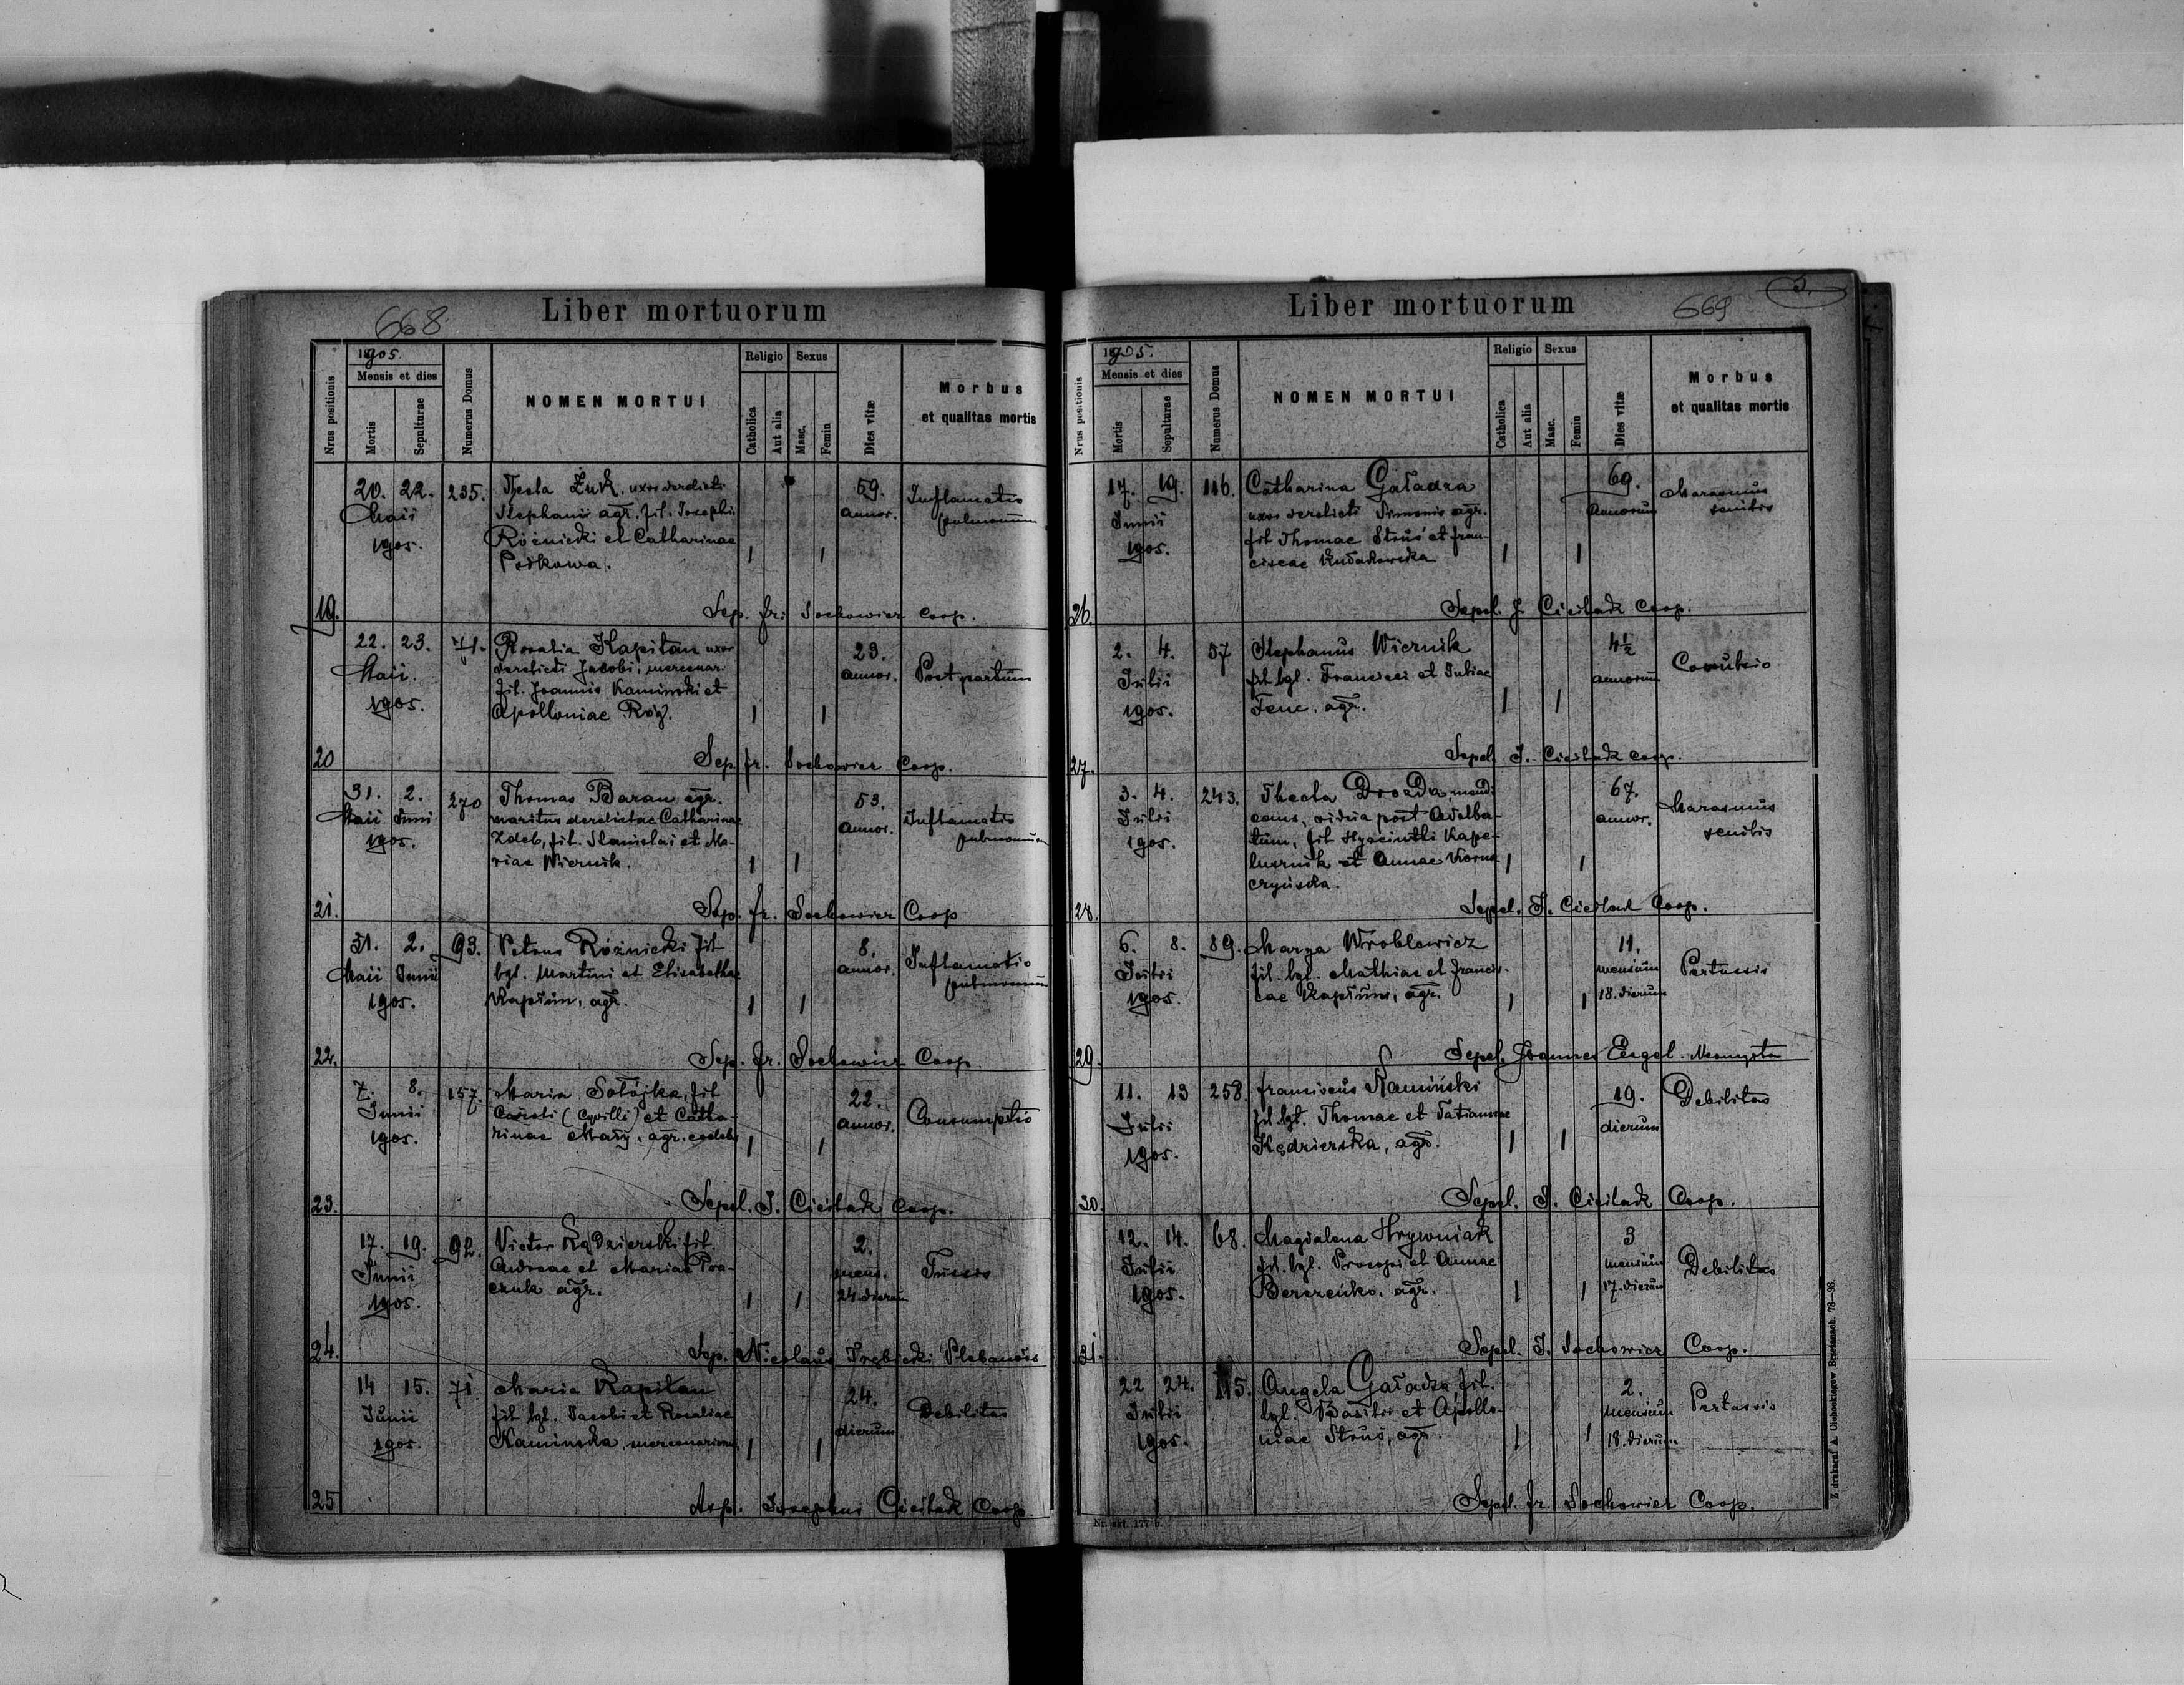 668
Liber mortuorum
1905.
Mensis et dies
Nrus positionis
Mortis
Sepulturae
Numerus Domus
NOMEN MORTUI
Religio
Catholica
Aut alia
Sexus
Masc.
Femin
Dies vitæ
Morbus
et qualitas mortis
20. 22. 235. Thecla Żuk, uxor derelicti 59. Inflamatio
Maii Stephani agr. fil. Josephi annor. pulmonum
1905. Różniecki et Catharinae
Petkowa. 1 1
19. Sep. fr. Sochowicz Coop.
22. 23. 71. Rosalia Kapitan uxor 23. Post partum
Maii. derelicti Jacobi, mercenar. annor.
1905. fil. Joannis Kamiński et
Apolloniae Róg. 1 1
20 Sep. fr. Sochowicz Coop.
31. 2. 270 Thomas Baran agr. 53. Inflamatio
Maii Junii maritus derelictae Catharinae annor. pulmonum
1905. Zdeb, fil. Stanislai et Ma-
riae Wiernik. 1 1
21. Sep. fr. Sochowicz Coop
31. 2. 93. Petrus Różniecki fil 8. Inflamatio
Maii Junii lgt. Martini et Elisabethae annor. pulmonum
1905. Kapłun, agr. 1 1
22. Sep. fr. Sochowicz Coop.
7. 8. 157. Maria Sołojka, fil 22. Consumptio
Junii Caroli (Cyrilli) et Catha- annor.
1905. rinae Mały, agr. coelebs 1 1
23. Sepel. J. Cieślak Coop.
17. 19. 92. Victor Kędzierski fil. 2. Tussis
Junii Andreae et Mariae mens.
1905. agr. 1 1 24. dierum
24. Sep. Nicolaus Plebanus
14 15. 71. Maria Kapitan 24. Debilitas
Junii fil lgt. Jacobi et Rosaliae dierum
1905. Kamińska, mercenariorum 1 1
25 Sep. Josephus Cieślak Coop.
669
3.
Liber mortuorum
1905.
Mensis et dies
Nrus positionis
Mortis
Sepulturae
Numerus Domus
NOMEN MORTUI
Religio
Catholica
Aut alia
Sexus
Masc.
Femin
Dies vitæ
Morbus
et qualitas mortis
17. 19. 116. Catharina Gaładza 69. Marasmus
Junii uxor derelicti Simonis agr. annorum senilis
1905. fil Thomae Struś et Fran-
ciscae 1 1
26. Sepel. J. Cieślak Coop.
2. 4. 57 Stephanus Wiernik 4½ Convulsio
Julii fil lgt. Francisci et Juliae annorum
1905. Fenc, agr. 1 1
27. Sepel. J. Cieślak Coop.
3. 4. 243. Thecla Drozda, mendi- 67. Marasmus
Julii cans, vidua post Adalber- annor. senilis
1905. tum, fil Hyacinthi Kape-
lusznik et Annae Korna- 1 1
czyńska.
28. Sepel. J. Cieślak Coop.
6. 8. 89. Marya Wroblewicz 11. Pertussis
Julii fil. lgt. Mathiae et Francis- mensium
1905. cae Kapłun, agr. 1 1 18. dierum
29. Sepel. Joannes Engel Neomysta
11. 13 258. Franciscus Kamiński 19. Debilitas
Julii fil. lgt. Thomae et Tatiannae dierum
1905. Kędzierska, agr. 1 1
30. Sepel. J. Cieślak Coop.
12. 14. 68. Magdalena Hrywniak 3 Debilitas
Julii fil. lgt. Procopi et Annae mensium
1905. Berezeńko. agr. 1 1 17. dierum
31. Sepel. J. Sochowicz Coop.
22 24. 115. Angela Gaładza, fil. 2. Pertussis
Julii lgt. Basilii et Apollo- mensium
1905. niae Struś, agr. 1 1 18. dierum
Sepel. fr. Sochowicz Coop.
Nr. skł. 177 b.